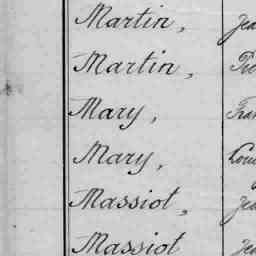 Martin, Jea
Martin, Pie
Mary, Fran
Mary, Loui
Massiot, Jea
Massiot Jea